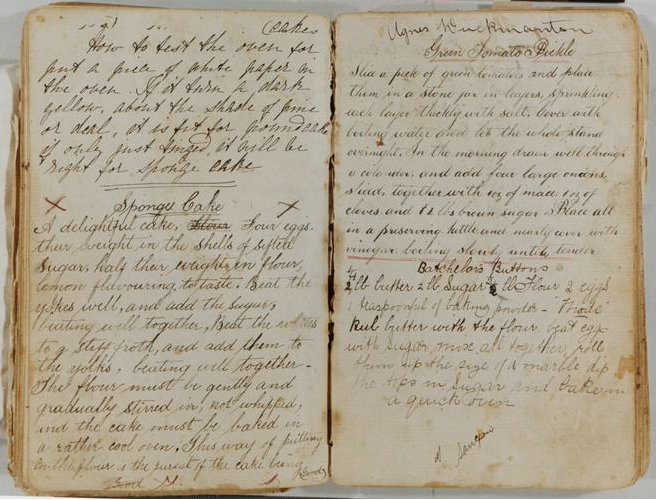 Cakes
How to test the oven for
put a piece of white paper in
the oven. If it turn a dark
yellow, about the shade of pine
or deal, it is fit for pound cake
if only just tinged, it will be
right for sponge cake
Sponge Cake
A delightful cake, Flour Four eggs.
their weight in the shells of sifted
Sugar, half their weight in flour,
lemon flavouring to taste. Beat the
yokes well, and add the sugar,
beating well together, Beat the whites
to a stiff froth, and add them to
the yolks, beating well together -
The flour must be gently and
gradually stirred in, not whipped,
and the cake must be baked in
a rather cool oven. This way of putting
in the flour is the surest of the cake being
Good
Good
Agnes
Green Tomato Pickle
Slice a peck of green tomatoes and place
them in a stone jar in layers, sprinkling
each layer thickly with salt. Cover with
boiling water and let the whole stand
overnight. In the morning drain well through
a colander, and add four large onions,
sliced, together with 1oz of mace 1oz of
cloves and 1 2 lbs brown sugar Place all
in a preserving kettle and nearly cover with
vinegar. boiling slowly until tender
Batchelors Buttons
lb butter lb Sugar lb Flour 2 eggs
1 teaspoonful of baking powder -
Rub butter with the flour, beat egg
with sugar, mix all together, roll
them up the size of a marble dip
the tops in sugar and bake in
a quick oven